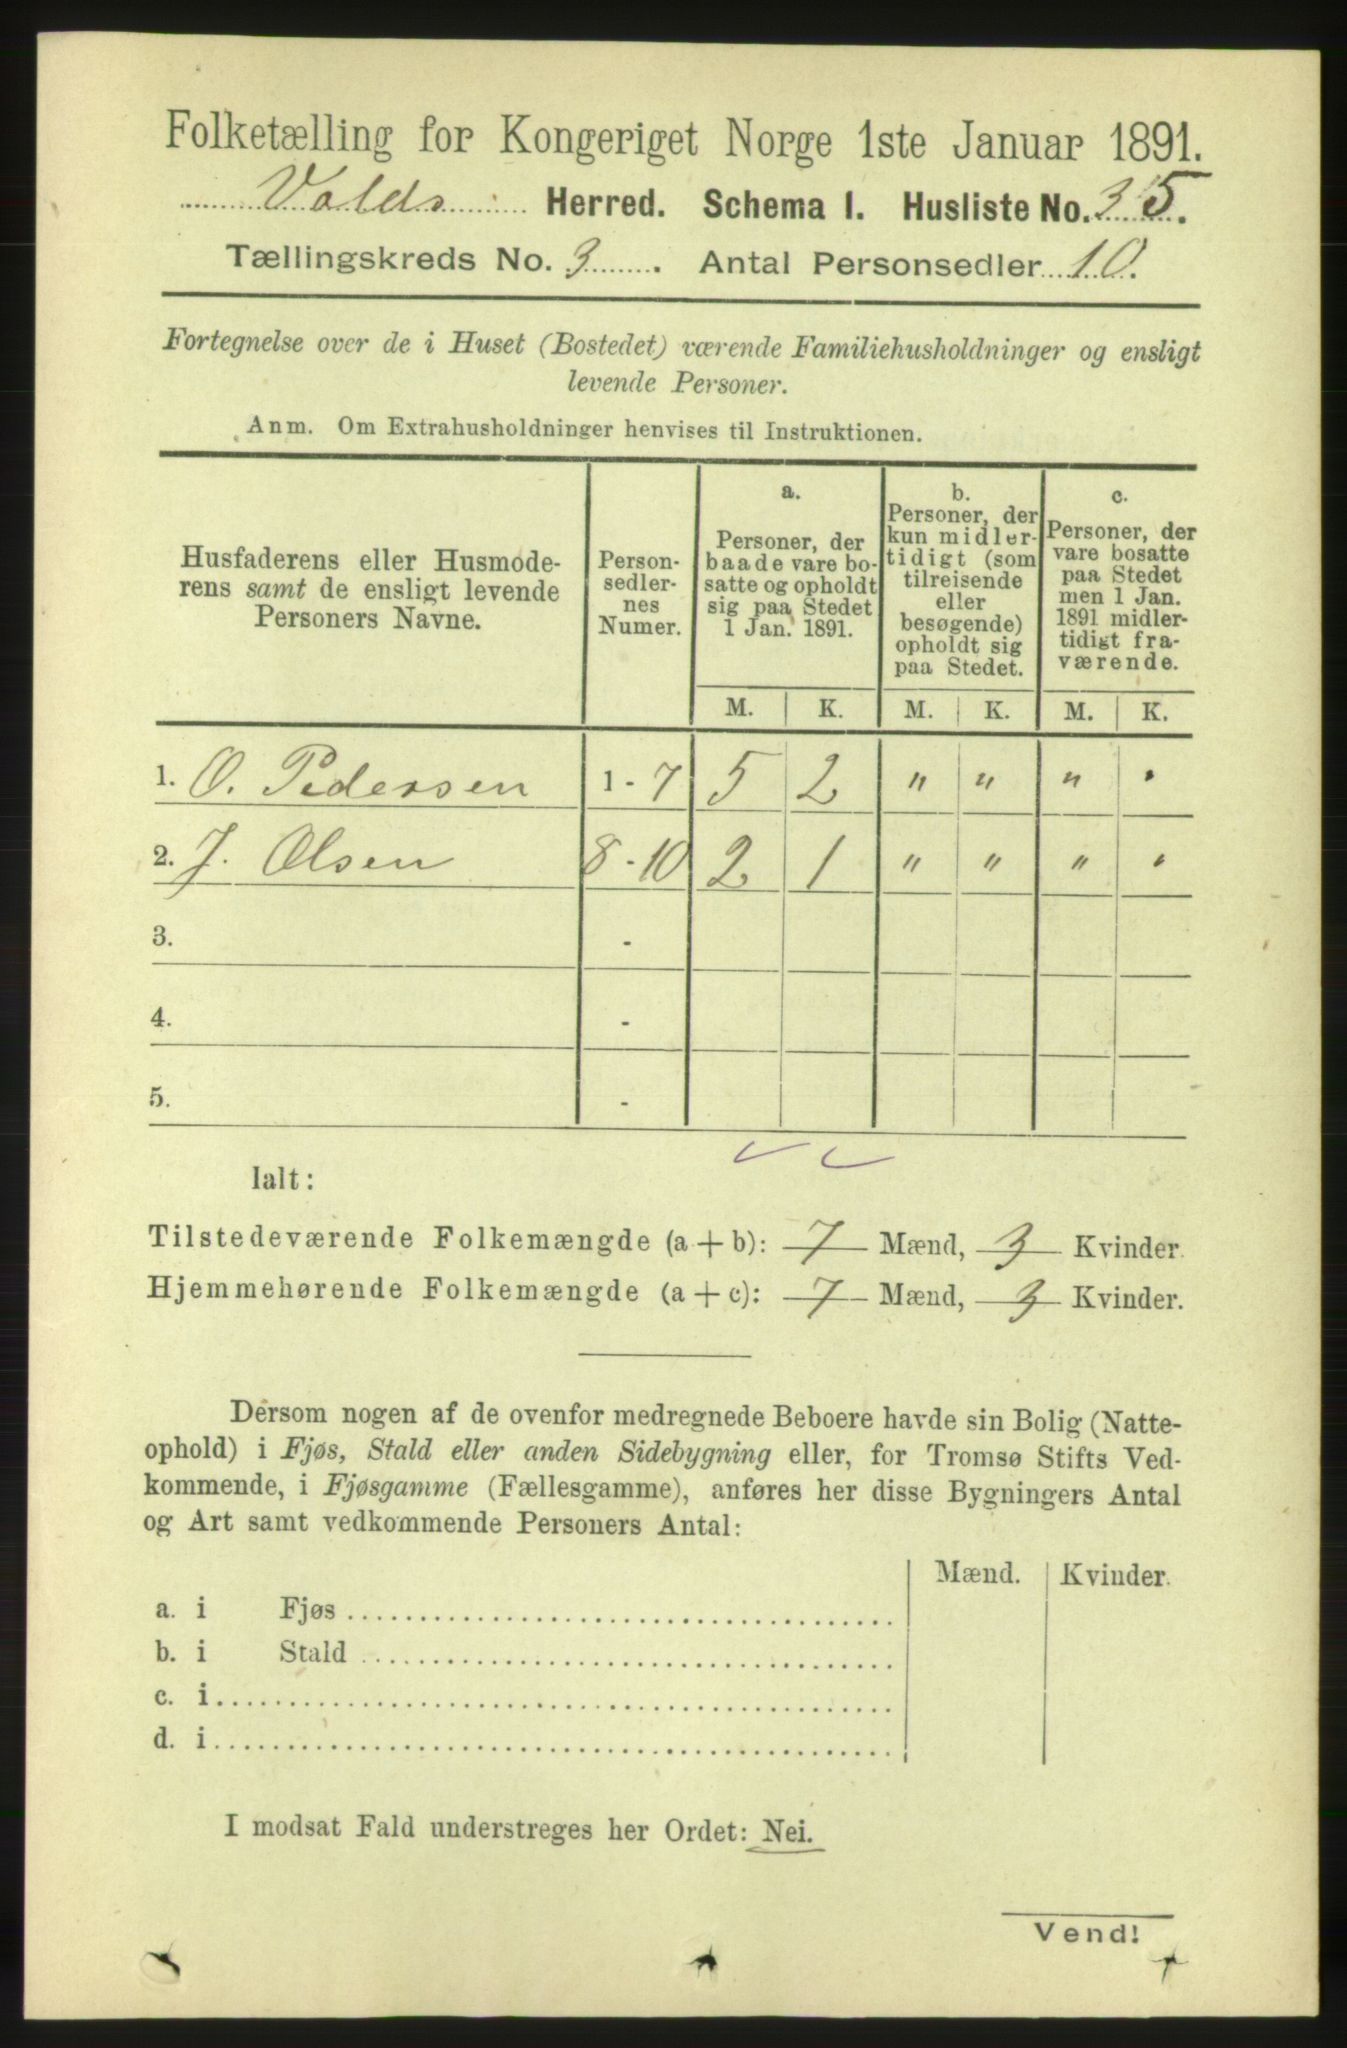 Folketælling for Kongeriget Norge 1ste Januar 1891.
Volds Herred. Schema I. Husliste No. 35.
Tællingskreds No. 3. Antal Personsedler 10.
Fortegnelse over de i Huset (Bostedet) værende Familiehusholdninger og ensligt
levende Personer.
Anm. Om Extrahusholdninger henvises til Instruktionen.
Husfaderens eller Husmode-
rens samt de ensligt levende
Personers Navne.
Person-
sedler-
nes
Numer.
a.
Personer, der
baade vare bo-
satte og opholdt
sig paa Stedet
1 Jan. 1891.
b.
Personer, der
kun midler-
tidigt (som
tilreisende
eller
besøgende)
opholdt sig
paa Stedet.
c.
Personer, der
vare bosatte
paa Stedet
men 1 Jan.
1891 midler-
tidigt fra-
værende.
M. K. M. K. M. K.
1. O. Pedersen 1-7 5 2 " " " "
2. J. Olsen 8-10 2 1 " " " "
3. -
4. -
5. -
Ialt:
Tilstedeværende Folkemængde (a+b): 7 Mænd, 3 Kvinder.
Hjemmehørende Folkemængde (a+c): 7 Mænd, 3 Kvinder.
Dersom nogen af de ovenfor medregnede Beboere havde sin Bolig (Natte-
ophold) i Fjøs, Stald eller anden Sidebygning eller, for Tromsø Stifts Ved-
kommende, i Fjøsgamme (Fællesgamme), anføres her disse Bygningers Antal
og Art samt vedkommende Personers Antal:
Mænd. Kvinder.
a. i Fjøs
b. i Stald
c. i
d. i
I modsat Fald understreges her Ordet: Nei.
Vend!